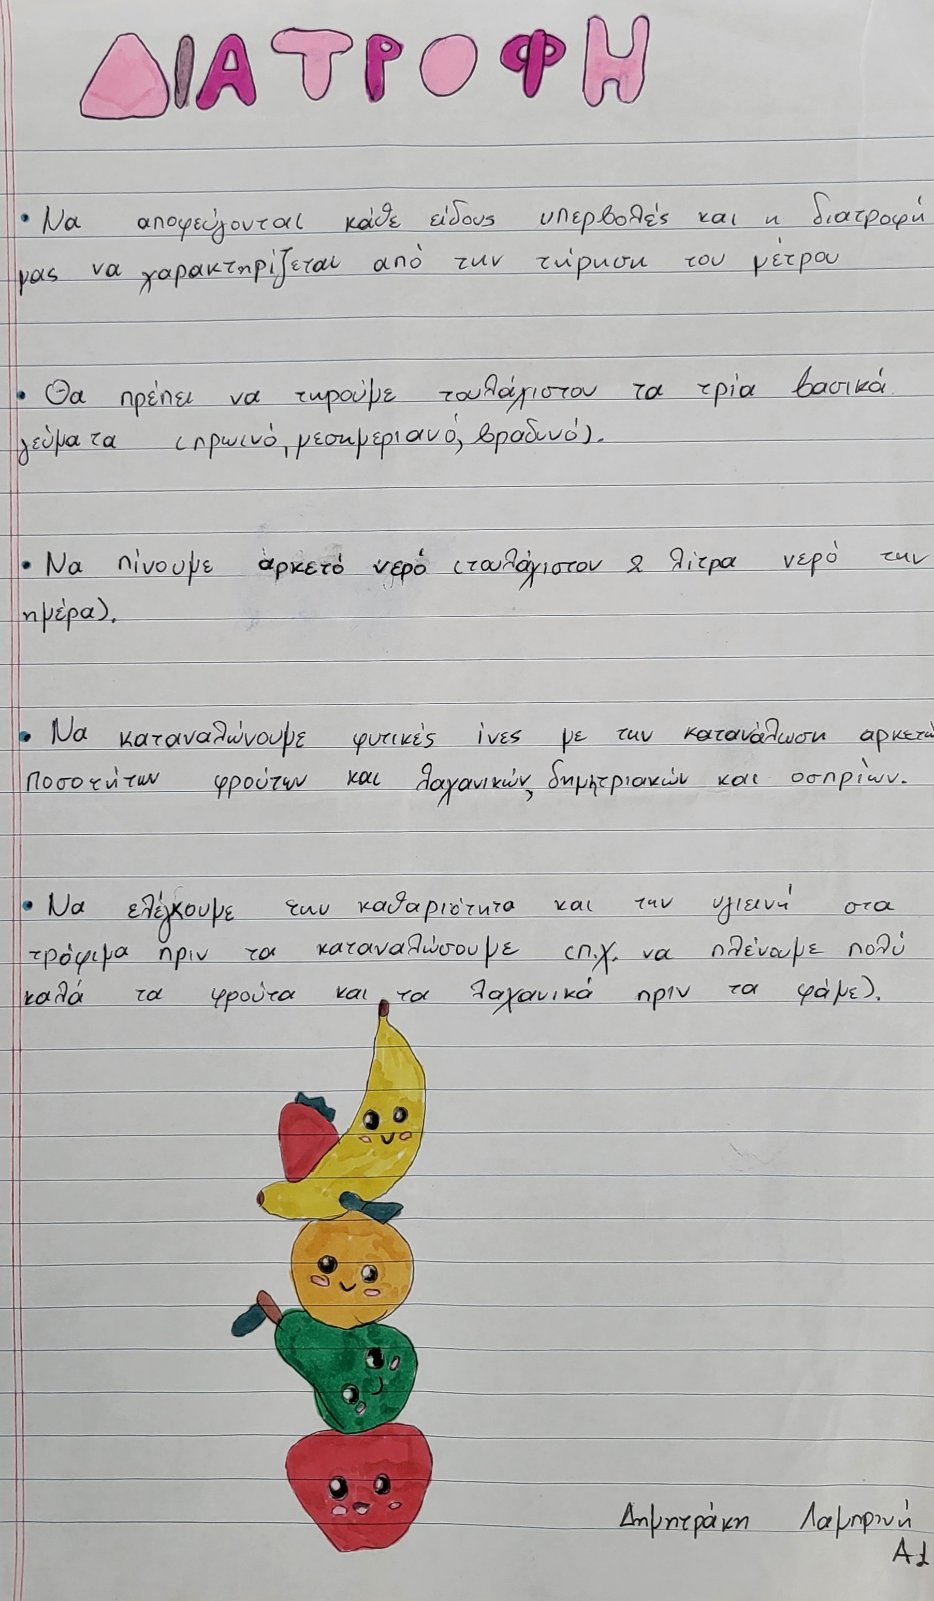 ΔΙΑΤΡΟΦΗ
• Να αποφεύγονται κάθε είδους υπερβολές και η διατροφή
μας να χαρακτηρίζεται από την τήρηση του μέτρου
• Θα πρέπει να τηρούμε τουλάχιστον τα τρία βασικά
γεύματα (πρωινό, μεσημεριανό, βραδινό).
• Να πίνουμε αρκετό νερό (τουλάχιστον 2 λίτρα νερό την
ημέρα).
• Να καταναλώνουμε φυτικές ίνες με την κατανάλωση αρκετών
ποσοτήτων φρούτων και λαχανικών, δημητριακών και οσπρίων.
• Να ελέγκουμε την καθαριότητα και την υγιεινή στα
τρόφιμα πριν τα καταναλώσουμε (π.χ. να πλένουμε πολύ
καλά τα φρούτα και τα λαχανικά πριν τα φάμε).
Δημητράκη Λαμπρινή
Α1